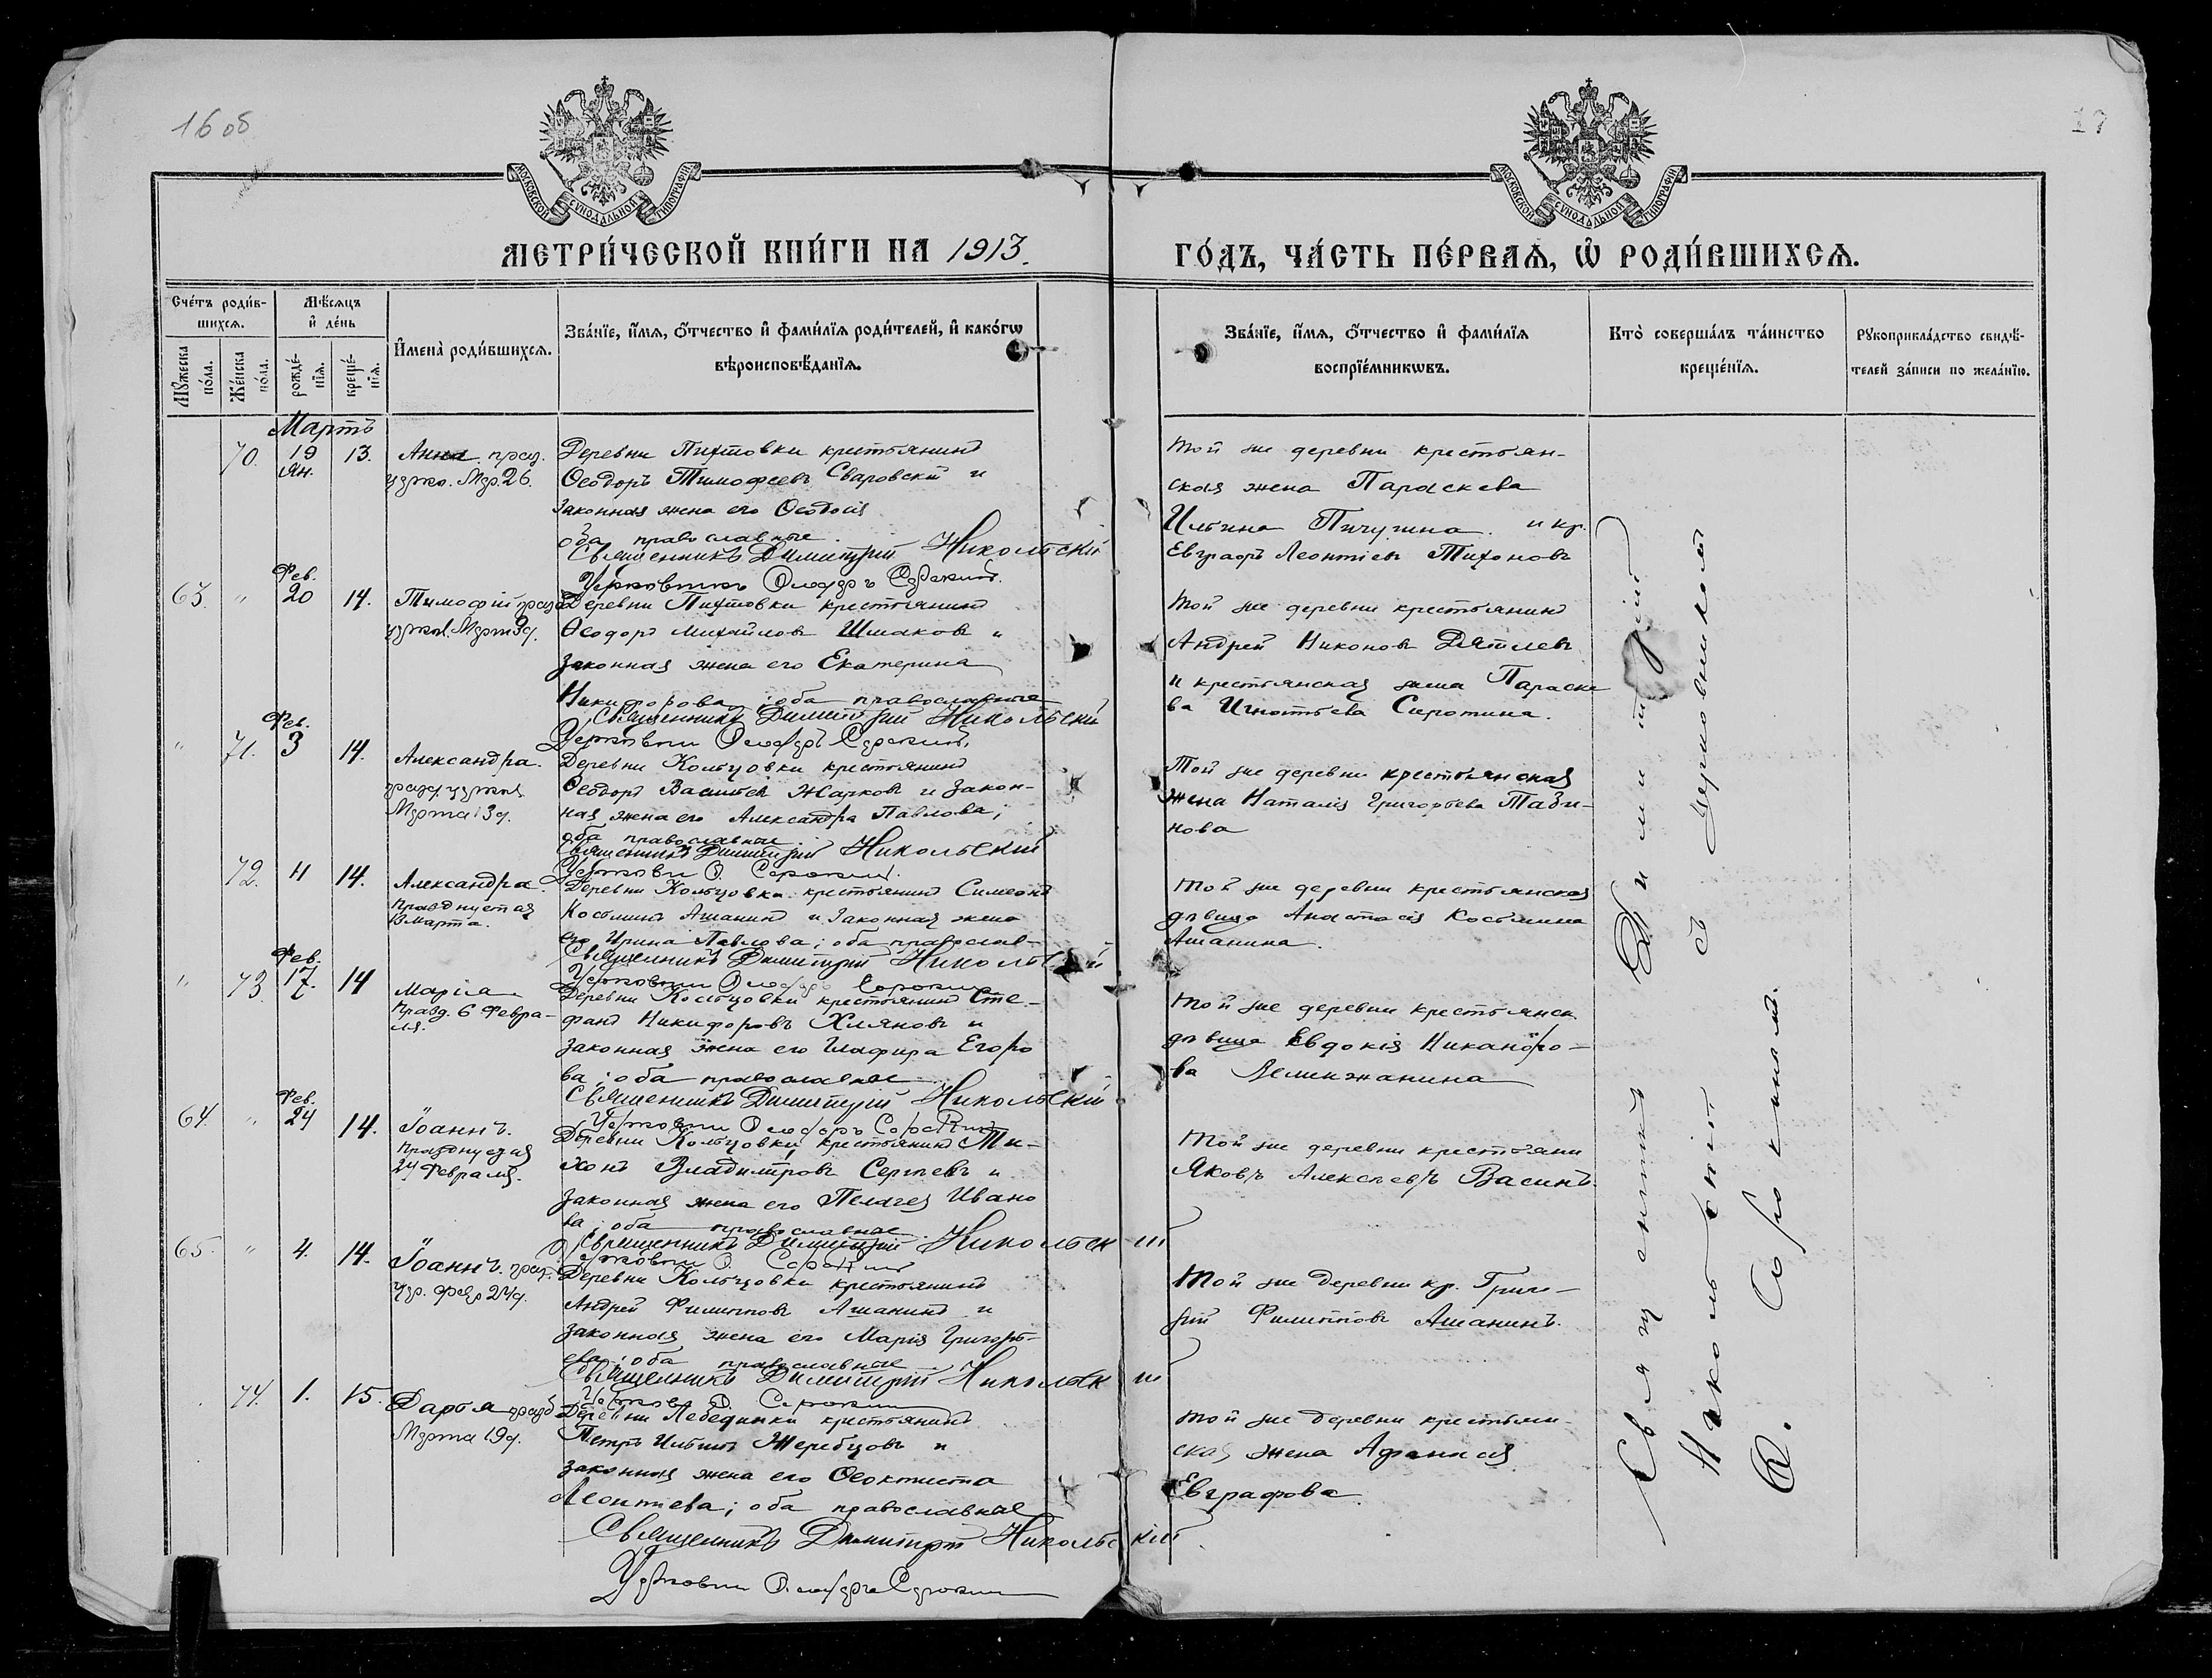 16 об
17
МОСКОВСКОЙ СѴНОДАЛЬНОЙ ТИПОГРАФІИ
МОСКОВСКОЙ СѴНОДАЛЬНОЙ ТИПОГРАФІИ
МЕТРИ́ЧЕСКОЙ КНИ́ГИ НА 1913.
ГО́ДЪ, ЧА́СТЬ ПЕ́РВАЯ, Ѡ҆ РОДИ́ВШИХСЯ.
Сче́тъ роди́в-
шихся.
Мꙋ́жеска по́ла.
Же́нска по́ла.
Мѣ́сяцъ
и҆ де́нь
рожде́-
нїя.
креще́-
нїя.
И҆мена̀ роди́вшихся.
Зва́нїе, и҆́мя, ѻ҆́тчество и҆ фами́лїя роди́телей, и҆ како́гѡ
вѣроисповѣ́данїя.
Зва́нїе, и҆́мя, ѻ҆́тчество и҆ фами́лїя
воспрїе́мникѡвъ.
Кто̀ соверша́лъ та́инство
креще́нїя.
Рꙋкоприкла́дство свидѣ́-
телей за́писи по жела́нїю.
Мартъ
70. 19 Ян. 13. Анна праз.
Мар. 26.
Деревни Пихтовки крестьянинъ
Ѳеодоръ Тимофеевъ Сваровскій и
законная жена его Ѳеодосія
оба православные.
Священникъ Димитрій Никольскій
Той же деревни крестьян-
ская жена Параскева
Ильина Пичугина. и кр.
Евграфъ Леонтіевъ Тихоновъ
63. " Фев. 20 14. Тимофій
Деревни Пихтовки крестьянинъ
Ѳеодоръ Михайловъ Шмаковъ и
законная жена его Екатерина
Никифорова, оба православные
Священникъ Димитрій Никольскій
Той же деревни крестьянинъ
Андрей Никоновъ Дятлевъ
и крестьянская жена Параске
ва Игнатьева Сиротина.
" 71. Фев. 3 14. Александра.
Марта 13 д.
Деревни Кольцовки крестьянинъ
Ѳеодоръ Васильевъ Жарковъ и закон-
ная жена его Александра Павлова;
оба православные.
Священникъ Димитрій Никольскій
Той же деревни крестьянская
жена Наталія Григорьева
нова
72. 4 14. Александра.
Празднуетъ
13 Марта.
Деревни Кольцовки крестьянинъ Симеонъ
Косьминъ Ашанинъ и законная жена
его Ирина Павлова; оба православ-
Священникъ Димитрій Никольскій
Той же деревни крестьянская
дѣвица Анастасія Косьмина
Ашанина.
" 73. Фев. 17. 14 Марія
Празд. 6 Февра-
ля.
Деревни Кольцовки крестьянинъ Сте-
фанъ Никифоровъ Хляновъ и
законная жена его Глафира Егоро
ва; оба православные
Священникъ Димитрій Никольскій
Той же деревни крестьянск.
дѣвица Евдокія Никаноро-
ва
64. " Фев. 24 14. Іоаннъ.
24 Февраля.
Деревни Кольцовки, крестьянинъ Ти-
хонъ Владиміровъ Сергѣевъ и
законная жена его Пелагея Ивано
ва; оба православные.
Священникъ Димитрій Никольскій
Той же деревни крестьяни
Яковъ Алексѣевъ Васинъ.
65. " 4. 14. Іоаннъ.
Деревни Кольцовки крестьянинъ
Андрей Филипповъ Ашанинъ и
законная жена его Марія Григорь-
ева; оба православные
Священникъ Димитрій Никольскій
Той же деревни кр. Григо-
рій Филипповъ Ашанинъ.
74. 1. 15. Дарья
Марта 19 д.
Деревни Лебединки крестьянинъ
Петръ Ильинъ Жеребцовъ и
законная жена его Ѳеоктиста
Леонтіева; оба православные
Священникъ Димитрій Никольскій
Той же деревни крестьян-
ская жена Афанасія
Евграфова.
Священникъ Димитрій
Никольскій съ церковникомъ
Ѳ. Сорокинымъ.